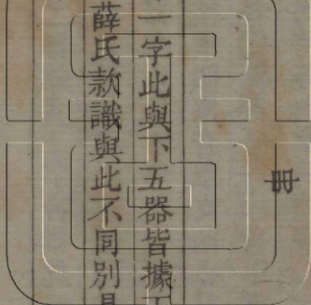 冊
一字此與下五器皆據
薛氏款識與此不同別